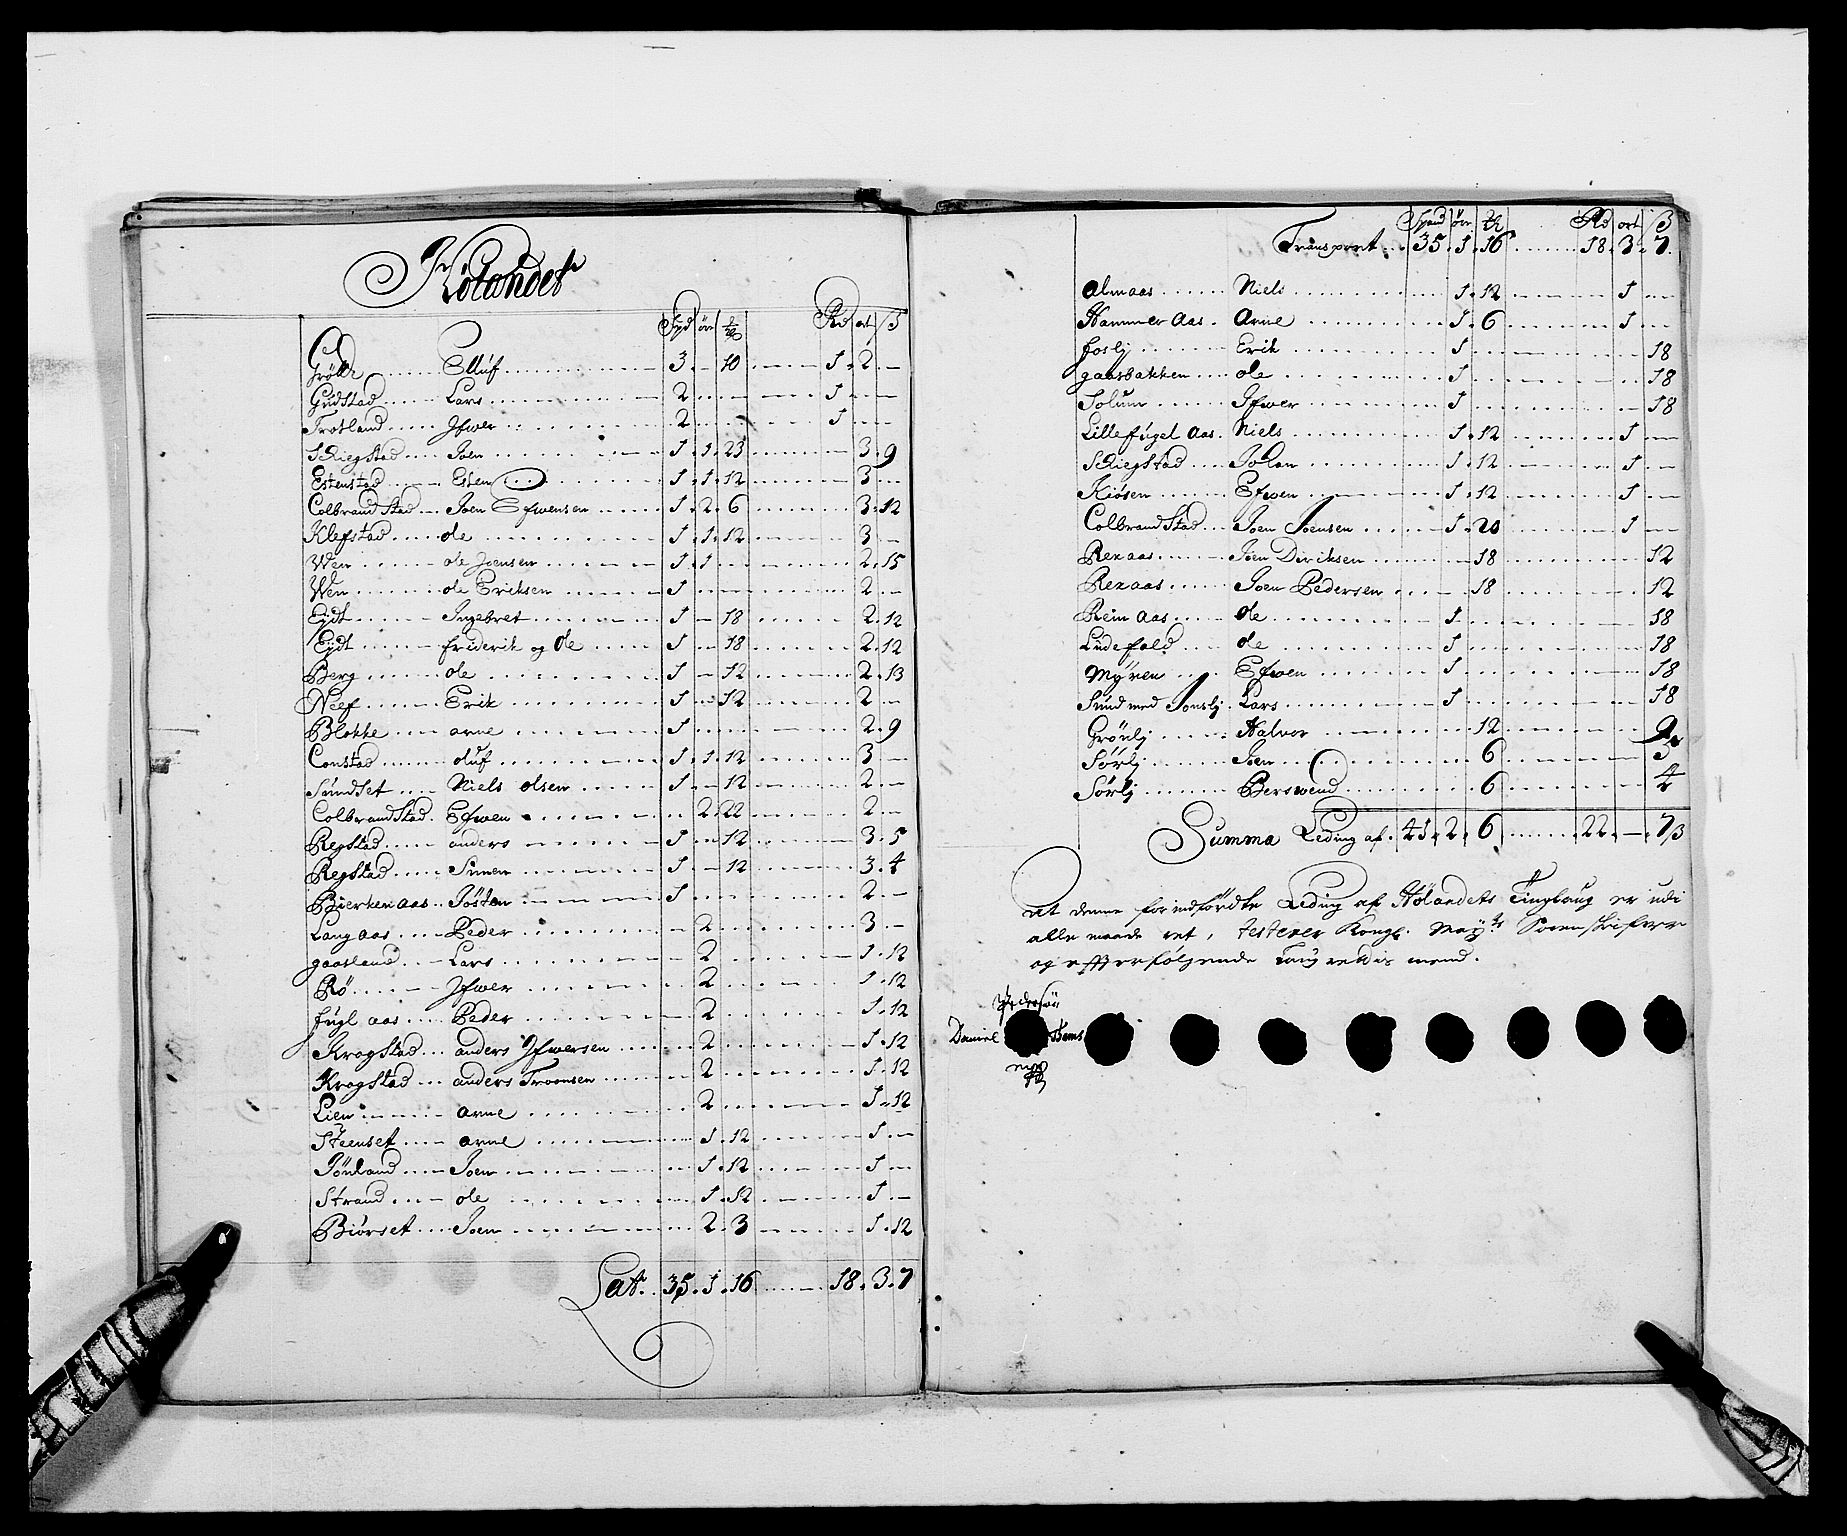 Hölandet
Spd ör ... Rd ort ß
Grötte ...... Elluf ...... 3 . - . 10 ...... 1 . 2 . -
Gudstad ...... Lars ...... 2 ...... 1 . - . -
Trotland ...... Ifwer ...... 2 ...... 1 . - . -
Schiegstad .... Joen ...... 1 . 1 . 23 ...... 3 . 9
Estenstad ...... Esten ...... 1 . 1 . 12 ...... 3 . -
Colbrandstad .. Joen Efwensen ...... 1 . 2 . 6 ...... 3 . 12
Klefstad ..... ole ...... 1 . 1 . 12 ...... 3 . -
Wen ...... ole Joensen ...... 1 . 1 ...... 2 . 15
Wen ...... ole Eriksen ...... 1 ...... 2 . -
Eydt ...... Ingebret ...... 1 . - . 18 ...... 2 . 12
Eydt ...... friderik og Ole ...... 1 . - . 18 ...... 2 . 12
Berg ...... ole ...... 1 . - . 12 ...... 2 . 13
Neef ...... Erik ...... 1 . - . 12 ...... 2 . -
Blokke .... arne ...... 1 ...... 2 . 9
Constad ...... oluf ...... 1 . 1 . 12 ...... 3 . -
Sundset .... Niels olsen ...... 1 . - . 12 ...... 2 . -
Colbrandstad . Efwen ...... 2 . 22 ...... 2 . -
Regstad ..... anders ...... 1 . - . 12 ...... 3 . 5
Regstad ..... Simen ...... 1 . - . 12 ...... 3 . 4
Bierken aas .. Josten ...... 1 ...... 2 . -
Lang aas .... Peder ...... 2 ...... 3 . -
gaasland ... Lars ...... 2 ...... 1 . 12
Rö ...... Ifwer ...... 2 ...... 1 . 12
fugl aas .... Peder ...... 2 ...... 1 . 12
Krogstad ... anders Ifwersen ...... 2 ...... 1 . 12
Krogstad ... anders Troensen ...... 2 ...... 1 . 12
Lien ...... arne ...... 2 ...... 1 . 12
Steenset .... arne ...... 1 . 12 ...... 1 . -
Jönland .... Joen ...... 1 . 12 ...... 1 . -
Strand .... ole ...... 1 . 12 ...... 1 . -
Biörset .... Joen ...... 2 . 3 ...... 1 . 12
Lat. .. 35 . 1 . 16 ...... 18 . 3 . 7
Spand ör ... Rd ort ß
Transport ... 35 . 1 . 16 ...... 18 . 3 . 7
Almaas ...... Niels ...... 1 . 12 ...... 1 . -
Hammer Aas . Arne ...... 1 . 6 ...... 1 . -
foslj ...... Erik ...... 1 ...... 18
gaasbakken ... ole ...... 1 ...... 18
Solum ...... Ifwer ...... 1 ...... 18
Lillefugel aas . Niels ...... 1 . 12 ...... 1 . -
Schiegstad ... Johan ...... 1 . 12 ...... 1 . -
Kiösen ...... Efwen ...... 1 . 12 ...... 1 . -
Colbrandstad .. Joen Joensen ...... 1 . 20 ...... 1 . -
Renaas ...... Joen Diriksen ...... 18 ...... 12
Renaas ...... Joen Pedersen ...... 18 ...... 12
Reim aas ...... ole ...... 1 ...... 18
Ludefald .... ole ...... 1 ...... 18
Myren .... Efwen ...... 1 ...... 18
Sund med Jonslj . Lars ...... 1 ...... 18
Grönlj ...... Halvor ...... 12 ...... 9
Sörlj ...... Joen ...... 6 ...... 3
Sörlj ...... Berswend ...... 6 ...... 4
Summa Leding af . 41 . 2 . 6 ...... 22 . - . 7 ß
At denne forindfördte Leding af Hölandets Tinglaug er udi
alle maade ret, testerer Kongl. Maytz Sorenskrifver
og effterfölgende Laug rettis mend.
Pedersön
Daniel Rams
mpp